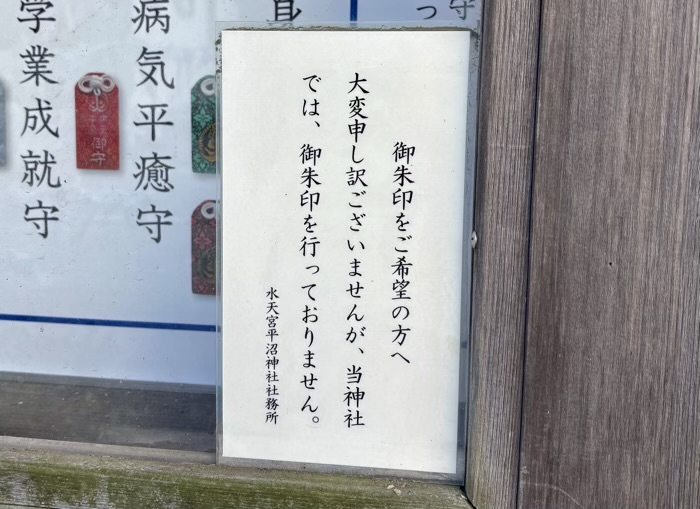 御朱印をご希望の方へ
大変申し訳ございませんが、当神社
では、御朱印を行っておりません。
水天宮平沼神社社務所
守
っ
身
病気平癒守
御守
学業成就守